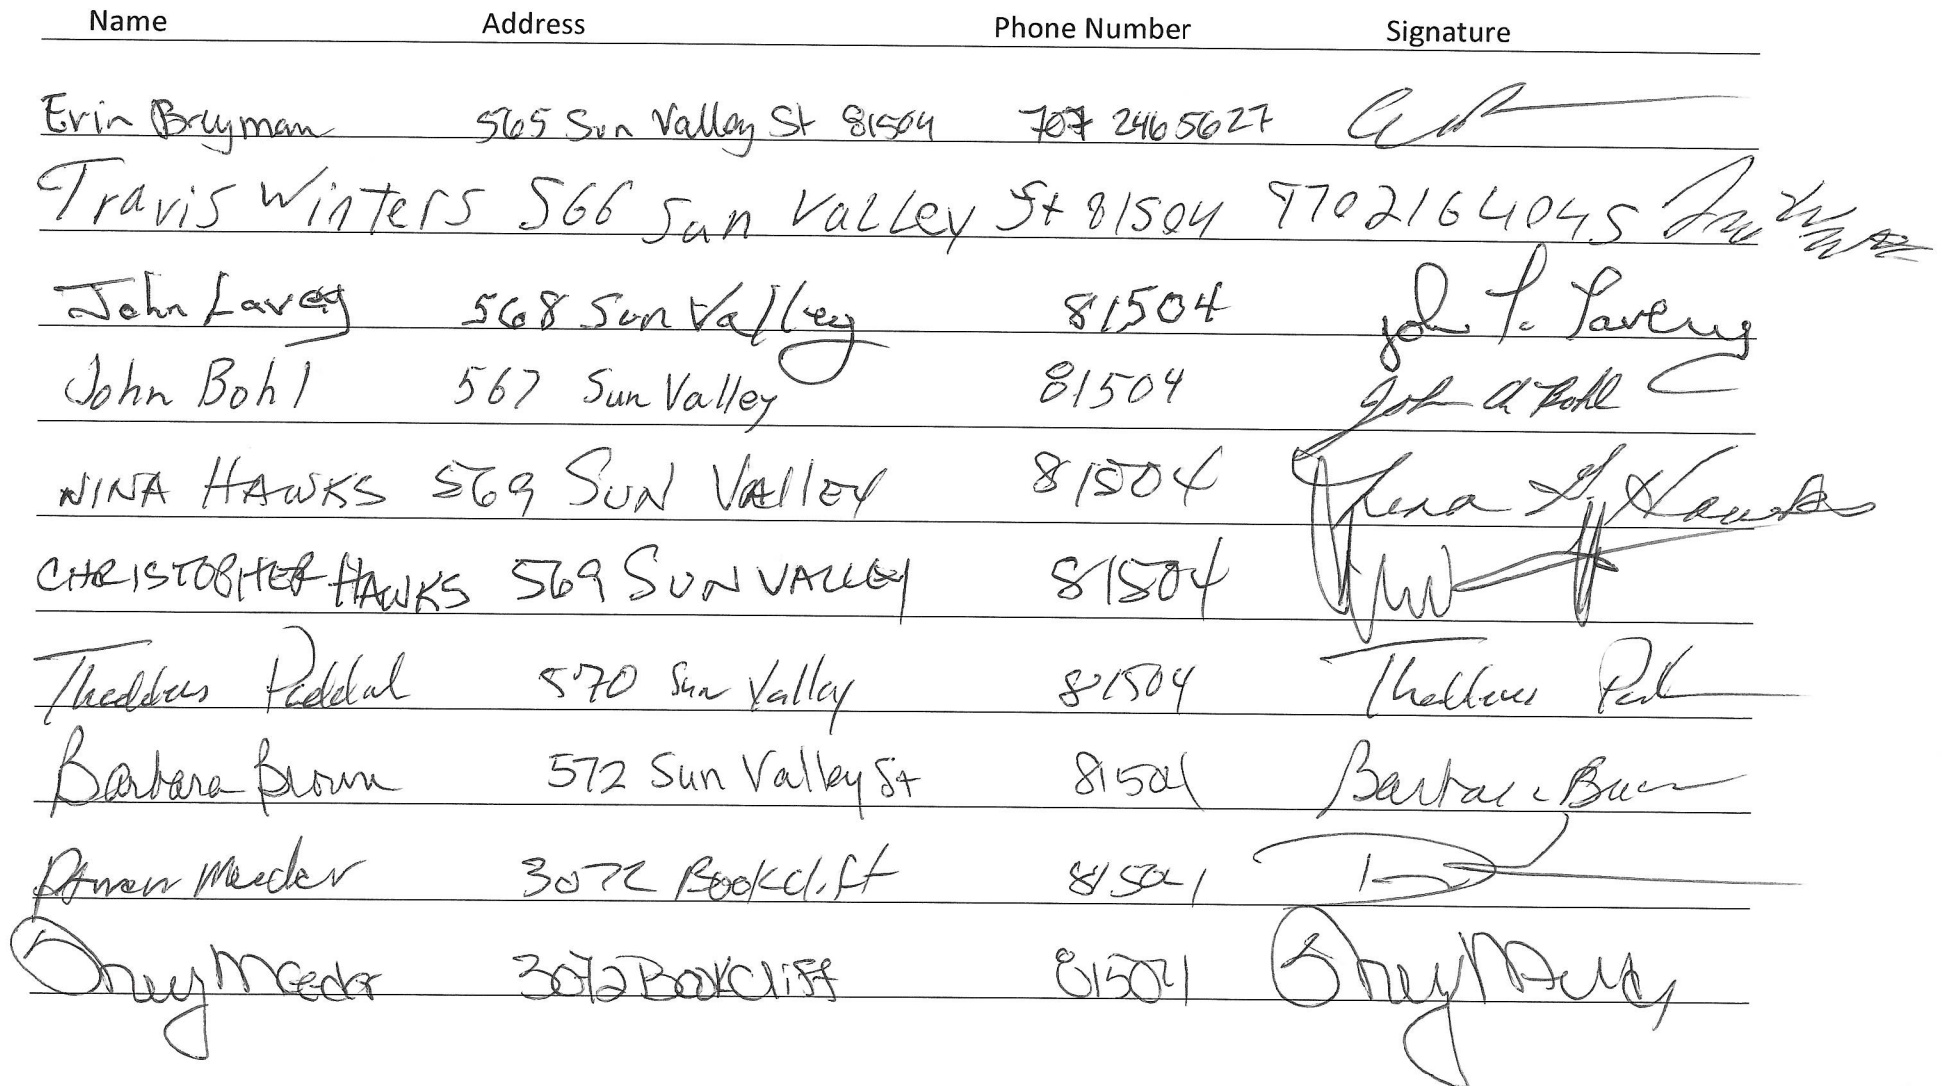 Name Address Phone Number Signature
Erin Bryman 565 Sun Valley St 81504 707 2465627
Travis Winters 566 Sun Valley St 81504 9702164045
John Lavey 568 Sun Valley 81504 John P. Lavery
John Bohl 567 Sun Valley 81504 John A Bohl
NINA HAWKS 569 SUN VAllEY 81504 Nina G. Hawks
CHRISTOPHER HAWKS 569 SUN VALLEY 81504
Thaddeus 570 Sun Valley 81504 Thaddeus
Barbara Brown 572 Sun Valley St 81504 Barbara Brown
Meeder 3072 Bookclift 81504
Meeder 3072 BookCliff 81504